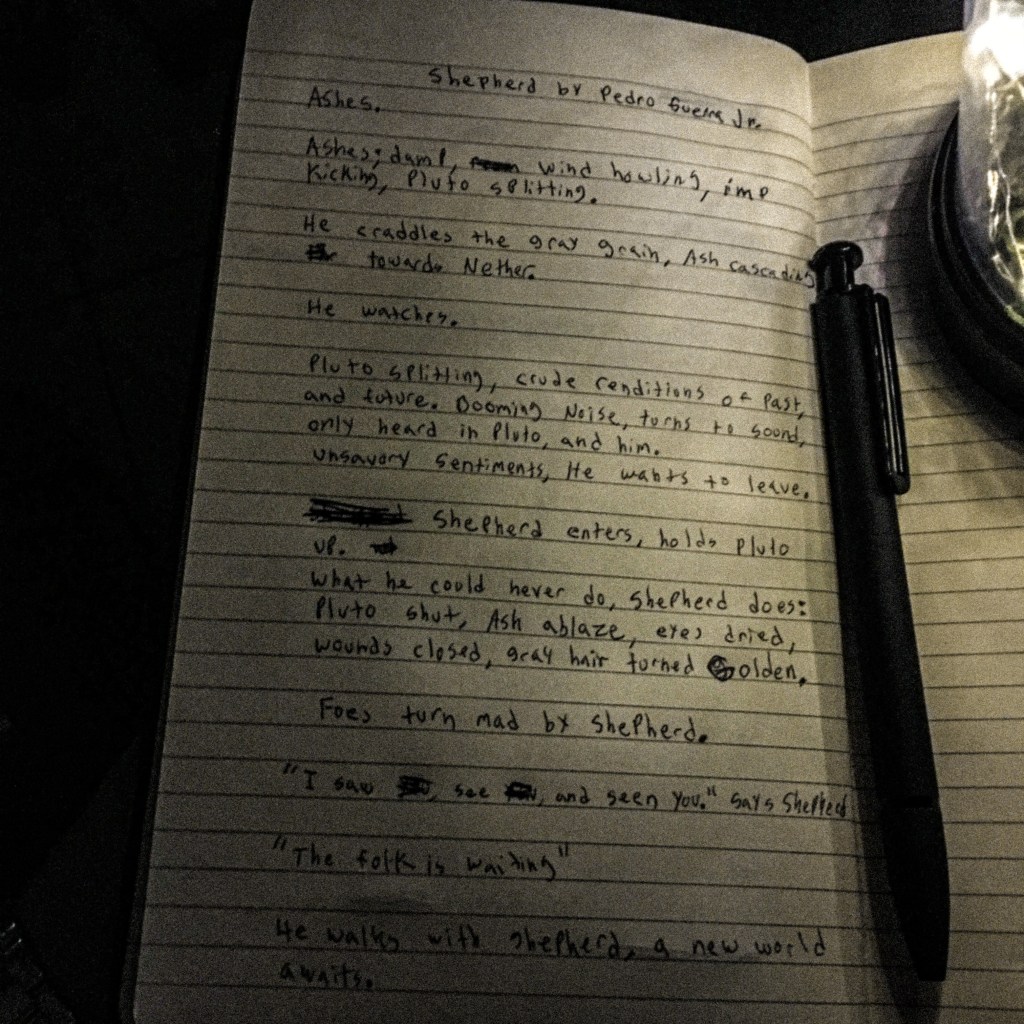 Shepherd by Pedro Guerra Jr.
Ashes.
Ashes; damp, wind howling, imp
Kicking, Pluto splitting.
He craddles the gray grain, Ash cascading
towards Nether.
He watches.
Pluto splitting, crude renditions of Past,
and future. Dooming Noise, turns to sound,
only heard in Pluto, and him.
unsavory sentiments, He wants to leave.
Shepherd enters, holds Pluto
up.
What he could never do, Shepherd does:
Pluto shut, Ash ablaze, eyes dried,
wounds closed, gray hair turned Golden.
Foes turn mad by Shepherd.
"I saw , see , and seen you." says Shepherd
"The folk is waiting"
He walks with Shepherd, a new world
awaits.